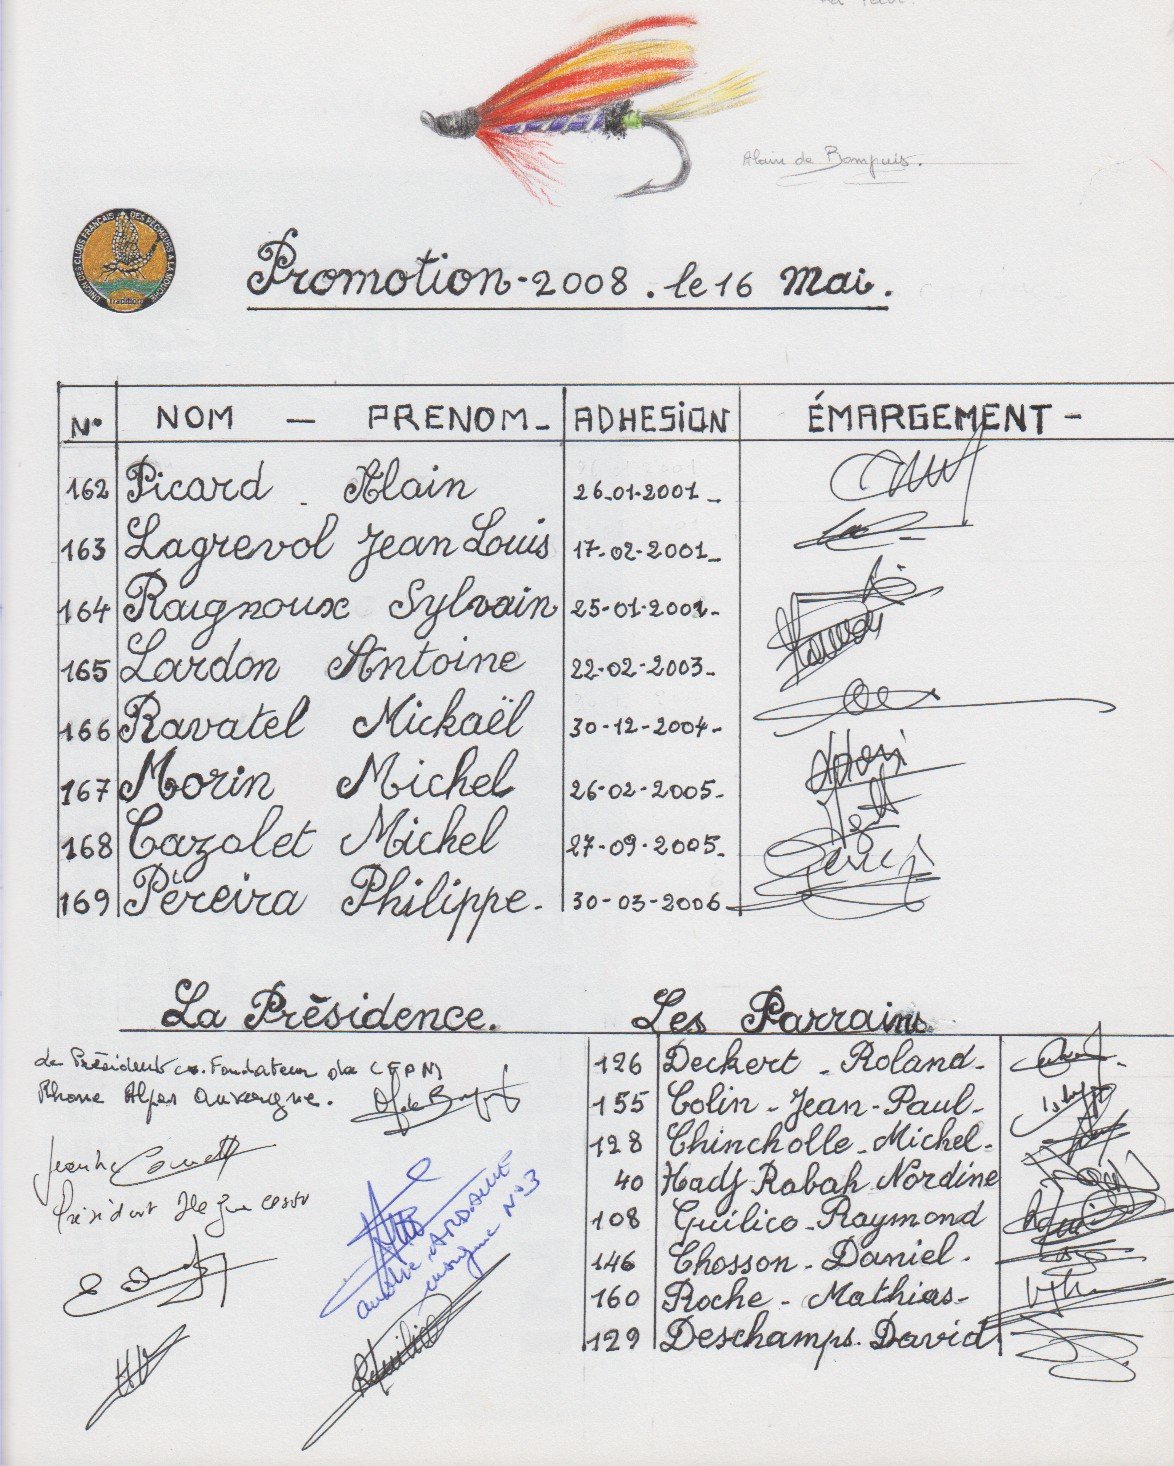 Alain de Bompuis.
UNION DES CLUBS FRANÇAIS DES PÊCHEURS A LA MOUCHE
Tradition
Promotion - 2008 . le 16 Mai .
N° NOM — PRENOM - ADHESION ÉMARGEMENT -
162 Picard . Alain 26-01-2001 -
163 Lagrevol Jean Louis 17-02-2001 -
164 Raignoux Sylvain 25-01-2002 -
165 Lardon Antoine 22-02-2003 -
166 Ravatel Mickaël 30-12-2004 -
167 Morin Michel 26-02-2005 -
168 Cazolet Michel 27-09-2005 -
169 Péreira Philippe - 30-03-2006 -
La Présidence.
Le Président co. Fondateur du CFPM
Rhone Alpes Auvergne.
Président
ANDRE ARDAILLE
insigne N°3
Les Parrains
126 Deckert - Roland -
155 Colin - Jean - Paul -
128 Chincholle - Michel -
40 Hadj Rabah Nordine
108 Guilico - Raymond
146 Chosson - Daniel -
160 Roche - Mathias -
129 Deschamps. David